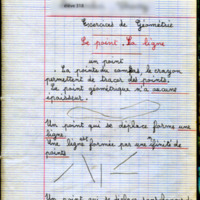 Exercices de Géométrie
Le point. La ligne
un point
. La pointe du compas, le crayon
permettent de tracer des points.
Le point géométrique n'a aucune
épaisseur.
Un point qui se déplace forme une
ligne
Une ligne formée par une infinité de
points
Un point qui se déplace